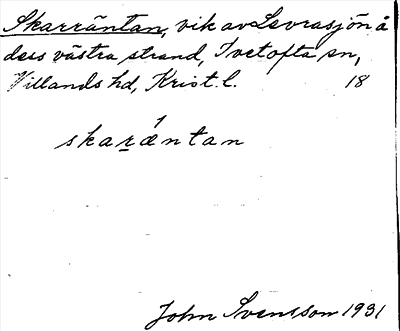 Skarräntan, vik av Levrasjön å
dess västra strand, Ivetofta sn,
Villands hd, Krist. l. 18
skaræntan
John Svensson 1931